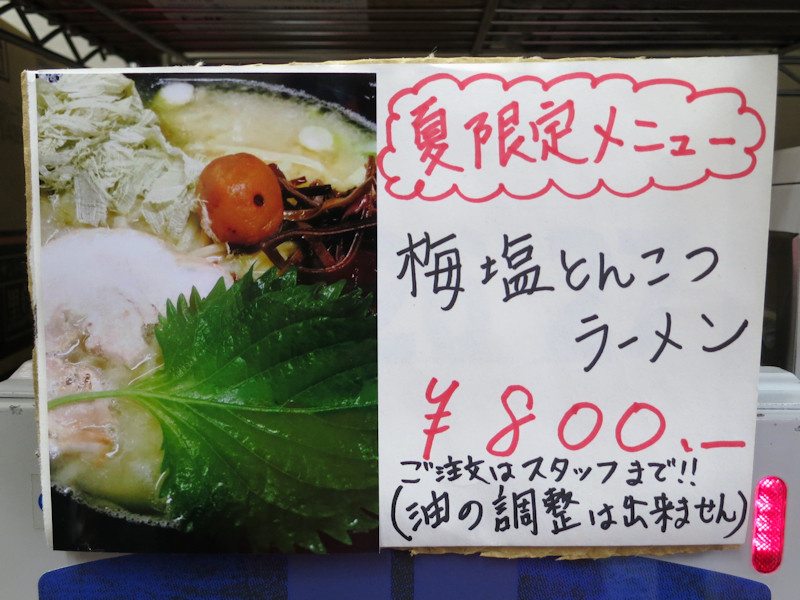 夏限定メニュー
梅塩とんこつ
ラーメン
¥800.—
ご注文はスタッフまで!!
(油の調整は出来ません)